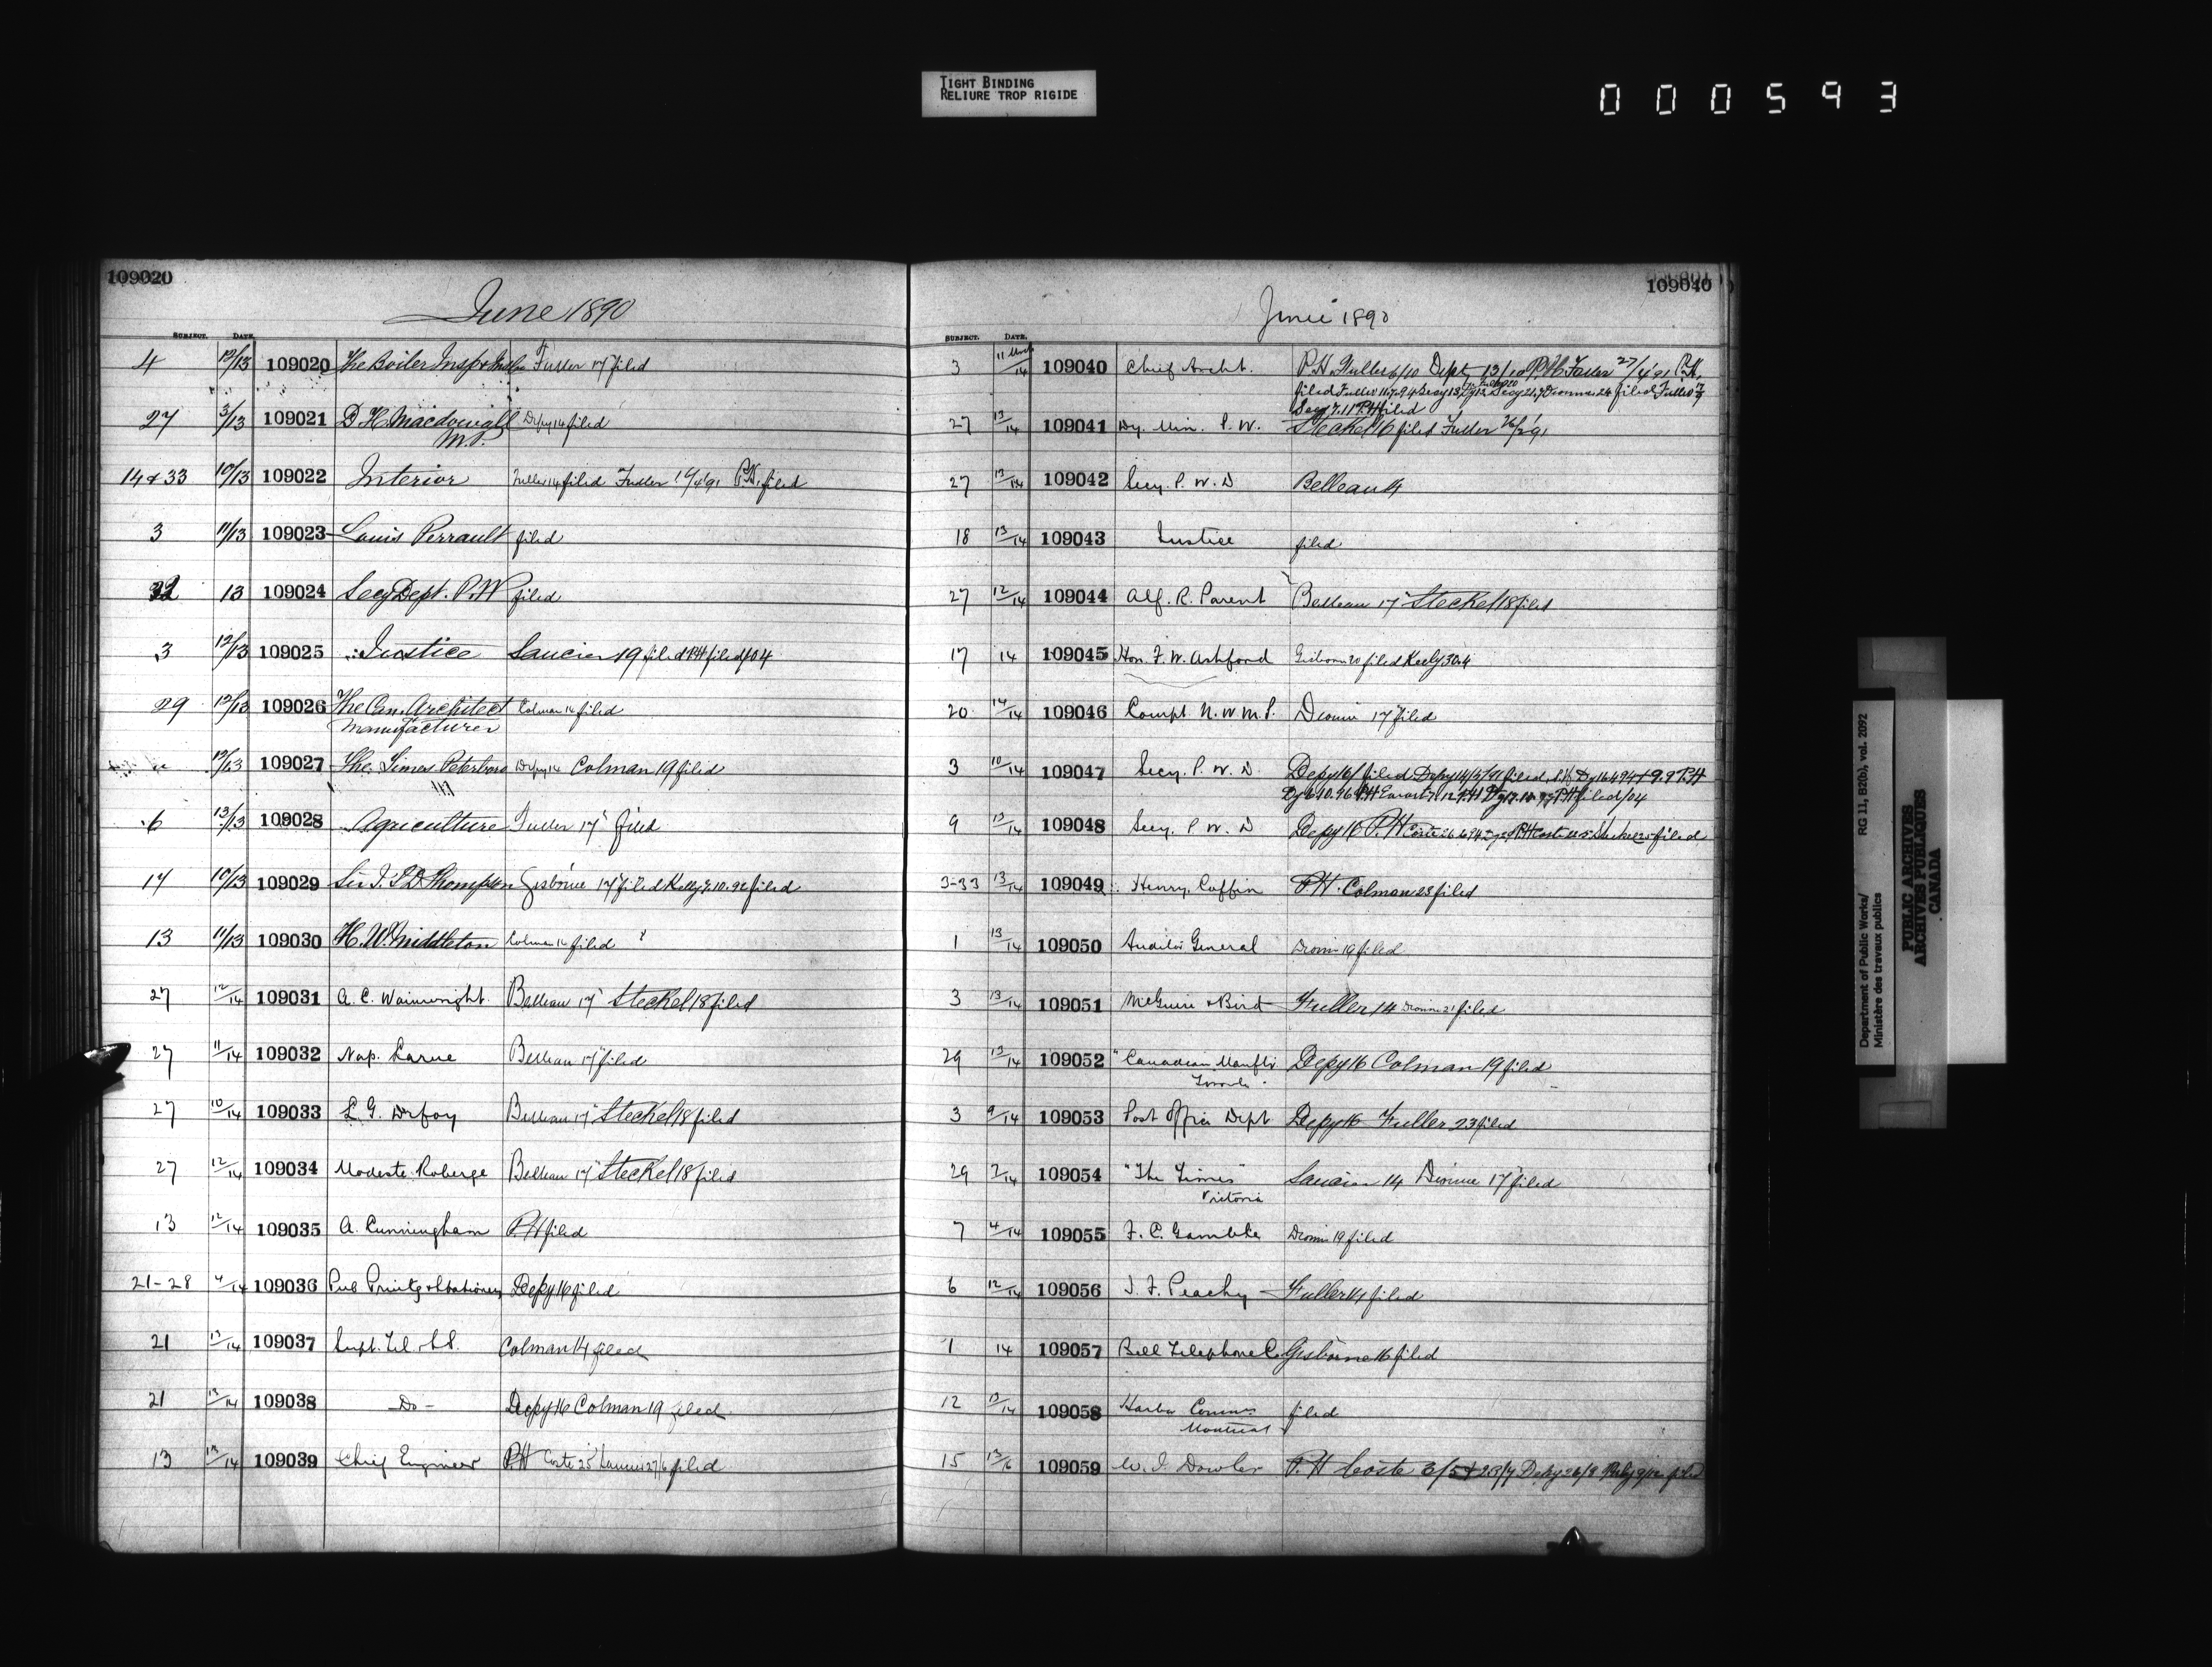 TIGHT BINDING
RELIURE TROP RIGIDE
000593
109020
June 1890
SUBJECT. DATE
4 12/13 109020 The Boiler Insp & Fuller 17 filed
27 3/13 109021 D. H. Macdowall Depy 14 filed
M.P.
14 & 33 10/13 109022 Interior Fuller 14 filed Fuller 16/4/91 P.H. filed
3 11/13 109023 Louis Perrault filed
32 13 109024 Secy Dept. P.W filed
3 12/13 109025 Justice Saucier 19 filed P.H filed/04
29 12/13 109026 The Can. Architect Colman 14 filed
Manufacturer
12/13 109027 The Times Peterboro Depy 14 Colman 19 filed
6 13/13 109028 Agriculture Fuller 17 filed
17 10/13 109029 Sir J. S D Thompson Gisborne 17 filed Kelly 7.10.92 filed
13 11/13 109030 H. W. Middleton Colman 14 filed
27 12/14 109031 A. C. Wainwright Belleau 17 Steckel 18 filed
27 11/14 109032 Nap. Larue Belleau 17 filed
27 10/14 109033 L. G. Belleau 17 Steckel 18 filed
27 12/14 109034 Modeste Roberge Belleau 17 Steckel 18 filed
13 12/14 109035 A. Cunningham P.H filed
21-28 4/14 109036 Pub Printg & Stationery Depy 16 filed
21 13/14 109037 Supt. Tel. Colman 14 filed
21 13/14 109038 - Do - Depy 16 Colman 19 filed
13 13/14 109039 Chief Engineer P.H Coste 25 Saucier 27/6 filed
109040
June 1890
SUBJECT. DATE.
3 11 March/14 109040 Chief Archt. P.H. Fuller 6/10 Depy 13/10 P.H. Fuller 27/4/91 P.H.
filed Fuller
Secy 7.11 P.H filed
27 13/14 109041 Dy. Min. P. W. Steckel 16 filed Fuller 26/2/91
27 13/14 109042 Secy. P. W. D Belleau 14
18 13/14 109043 Justice filed
27 12/14 109044 Alf. R. Parent Belleau 17 Steckel 18 filed
17 14 109045 Hon. F. W. Ashford Gisborne 20 filed Keely 30.4
20 14/14 109046 Compt N. W M. P. Dionne 17 filed
3 10/14 109047 Secy. P. W. D. Depy 16/ filed Depy 14/5/91 filed P.H
P.H filed/04
9 13/14 109048 Secy. P W. D Depy 16 P.H Coste Steckel 25 filed
3-33 13/14 109049 Henry, Coffin P.H. Colman 23 filed
1 13/14 109050 Auditor General Dionne 19 filed
3 13/14 109051 McGuire & Bird Fuller 14 Dionne 21 filed
29 13/14 109052 "Canadian Manftr Depy 16 Colman 19 filed
Toronto
3 9/14 109053 Post Office Dept Depy 16 Fuller 23 filed
29 7/14 109054 "The Times" Saucier 14 Dionne 17 filed
Victoria
7 4/14 109055 F. C. Gamble Dionne 19 filed
6 12/14 109056 J. F. Peachy Fuller 14 filed
1 14 109057 Bell Telephone Co Gisborne 16 filed
12 13/14 109058 Harbor Commrs filed
Montreal
15 13/16 109059 W. J. Dowler P.H Coste 3/5 & 23/7 Depy 26/8 filed
Department of Public Works/ RG 11, B2(b), vol. 2092
Ministère des travaux publics
PUBLIC ARCHIVES
ARCHIVES PUBLIQUES
CANADA